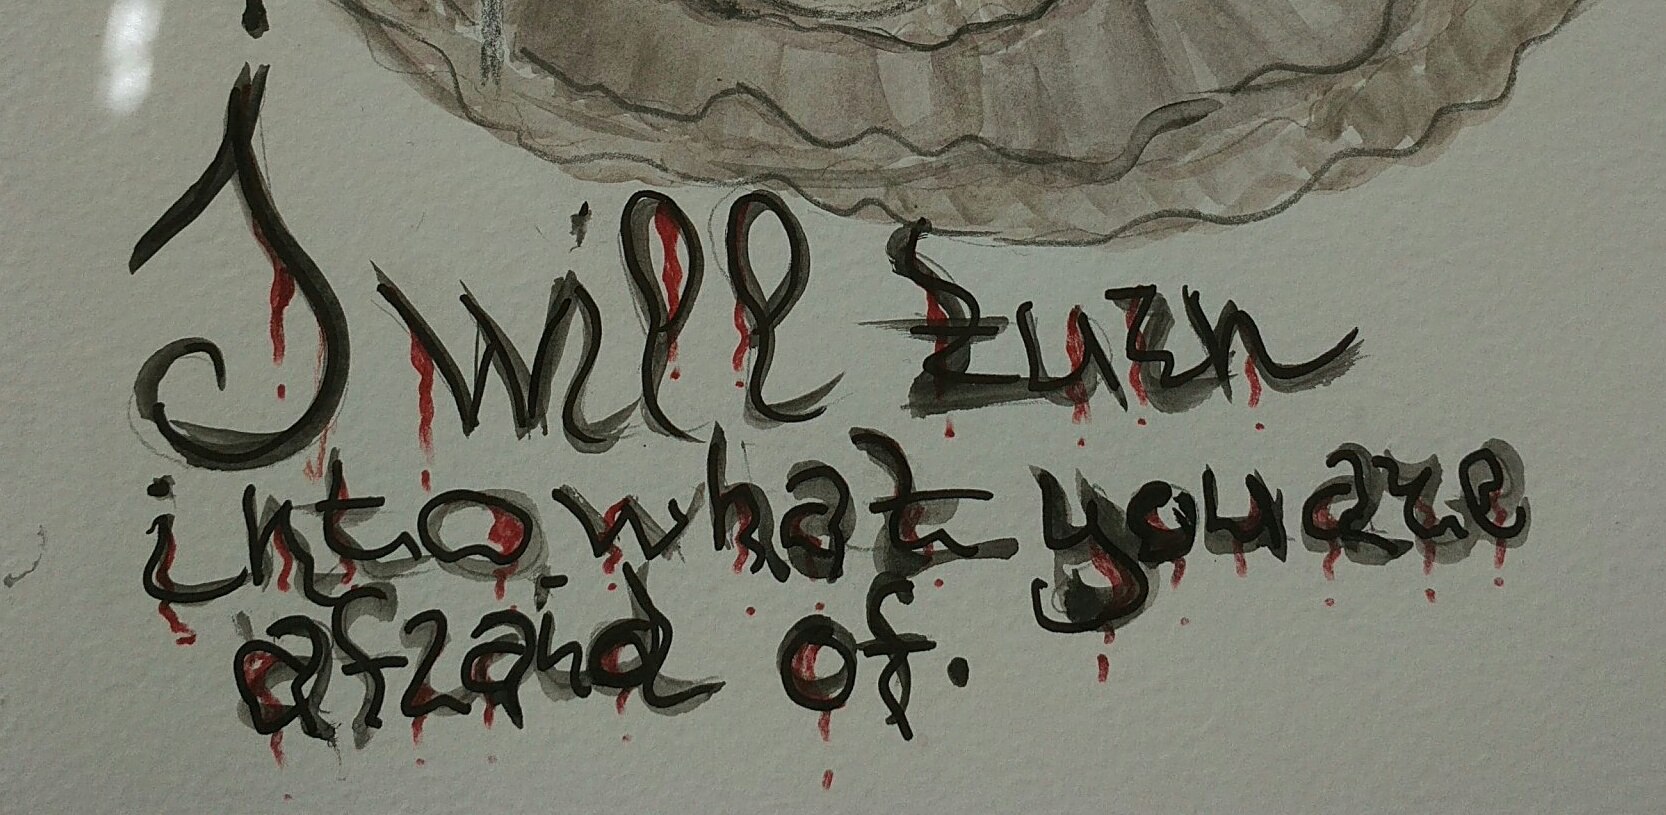 I will turn
into what you are
afraid of.